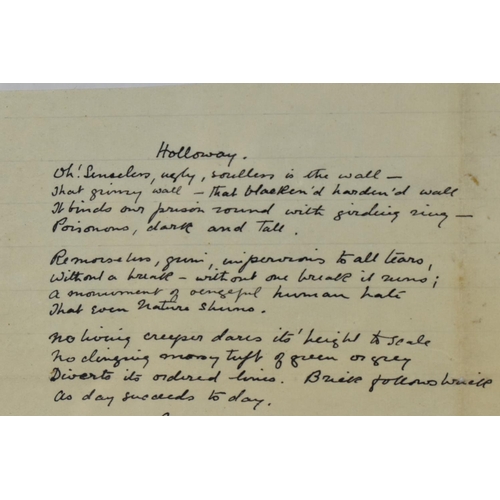 Holloway.
Oh! Senseless, ugly, soulless is the wall –
That grimy wall – that blacken'd harden'd wall
It binds our prison round with girding ring –
Poisonous, dark and Tall.
Remorseless, grim, impervious to all tears,
Without a break – without one break it runs;
A monument of vengeful human hate
That even Nature shuns.
No living creeper dares its' height to scale
No clinging mossy tuft of green or grey
Diverts its ordered lines. Brick follows brick
As day succeeds to day.